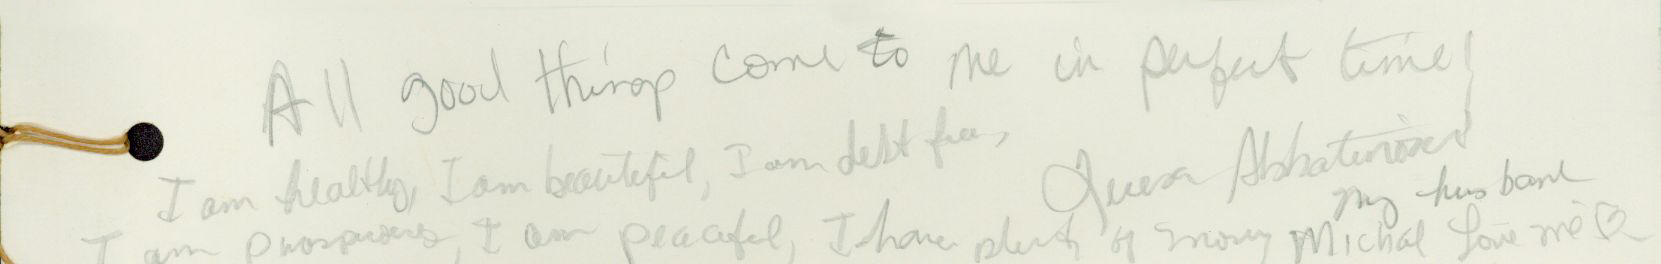 All good things come to me in perfect time!
I am healthy, I am beautiful, I am debt free,
my husband
I am prosperous, I am peaceful, I have plenty of money Michal Love me